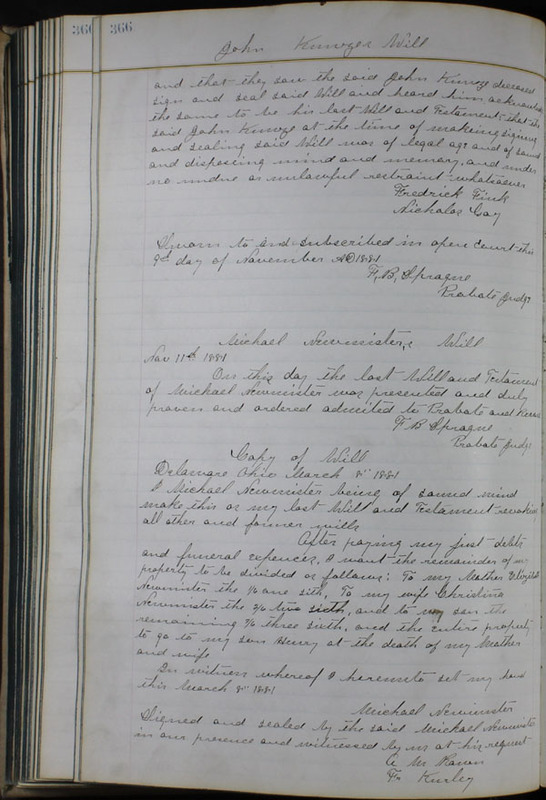 366 366
John Kunoze's Will
and that they saw the said John Kunoze deceased
sign and seal said Will and heard him acknowledge
the same to be his last Will and Testament, that the
said John Kunoze at the time of making signing
and sealing said Will was of legal age and of sound
and disposing mind and memory, and under
no undue or unlawful restraint whatsoever
Fredrick Fink
Nicholas Coy
Sworn to and subscribed in open court this
9th day of November AD 1881
F. B. Sprague
Probate Judge
Michael Newmister's Will
Nov 11th 1881
On this day the last Will and Testament
of Michael Newmister was presented and duly
proven and ordered admitted to Probate and
F B Sprague
Probate Judge
Copy of Will
Delaware Ohio March 8" 1881
I Michael Newmister being of sound mind
make this as my last Will and Testament revoking
all other and former wills
After paying my just debts
and funeral expences, I want the remainder of my
property to be divided as follows: To my Mother
Newmister the 1/6 one sith, To my wife Christina
Newmister the 2/6 two sixth, and to my son the
remaining 3/6 three sixth, and the entire property
to go to my son Henry at the death of my Mother
and wife
In witness whereof I hereunto set my hand
this March 8" 1881
Michael Newmister
Signed and sealed by the said Michael Newmister
in our presence and witnessed by us at his request